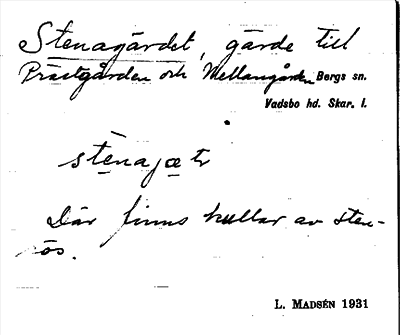 Stenagärdet, gärde till
Prästgården och Mellangården Bergs sn.
Vadsbo hd. Skar. l.
stenajætr
Där finns kullar av sten-
ös.
L. MADSÉN 1931